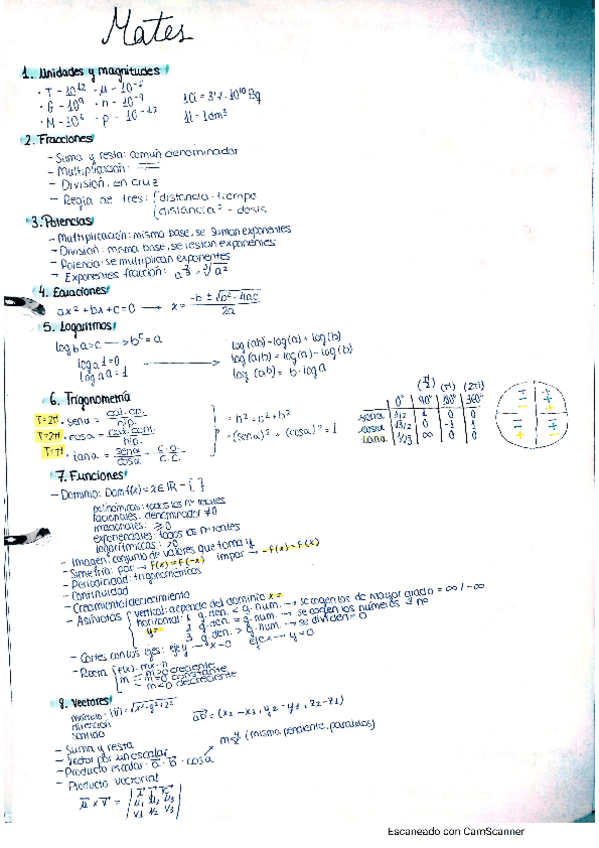 Mates
1. Unidades y magnitudes
· T - 10¹² · μ - 10⁻⁶
· G - 10⁹ · n - 10⁻⁹ 1Ci = 3'7 · 10¹⁰ Bq
· M - 10⁶ · p - 10⁻¹² 1l = 1dm³
2. Fracciones
- Suma y resta: común denominador
- Multiplicación:
- División: en cruz
- Regla de tres: { distancia - tiempo
distancia² - dosis
3. Potencias
- Multiplicación: misma base, se suman exponentes
- División: misma base, se restan exponentes
- Potencia: se multiplican exponentes
- Exponentes fracción:
4. Ecuaciones
ax² + bx + c = 0 → x = -b ± √b² - 4ac / 2a
5. Logaritmos
log_b a = c → b^c = a
log_a 1 = 0
log_a a = 1
log (ab) = log(a) + log(b)
log (a/b) = log(a) - log(b)
log (ab) = b · log a
6. Trigonometría
T=2π · sen a = cat. op. / hip.
T=2π · cos a = cat. cont. / hip.
T=π · tan a = sen a / cos a = c.o. / c.c.
= h² = c² + b²
= (sen a)² + (cos a)² = 1
(π/2) (π) (2π)
0° 90° 180° 360°
sena
cosa
tana
7. Funciones
- Dominio: Dom f(x) = x ∈ ℝ - { }
polinómicas: todos los nº reales
racionales: denominador ≠ 0
irracionales: ≥ 0
exponenciales: todos los nº reales
logarítmicas: > 0
- Imagen: conjunto de valores que toma y
- Simetría: par → f(x) = f(-x) impar → -f(x) = f(x)
- Periodicidad: trigonométricas
- Continuidad
- Crecimiento/decrecimiento
- Asíntotas { vertical: depende del dominio x =
horizontal: 1 g. den. < g. num. → se cogen los de mayor grado = ∞ / -∞
y = 2 g. den. = g. num. → se cogen los números
3 g. den. > g. num. → se dividen = 0
- Cortes con los ejes: eje y → x = 0 eje x → y = 0
- Recta { f(x) = mx + n
m > 0 creciente
m = 0 constante
m < 0 decreciente
8. Vectores
módulo: |v| = √x² + y² + z²
dirección
sentido
ab = (x₂ - x₁, y₂ - y₁, z₂ - z₁)
- Suma y resta
- Vector por un escalar (misma pendiente, paralelas)
- Producto escalar: a · b · cos a
- Producto vectorial
u × v = | i j k
u₁ u₂ u₃
v₁ v₂ v₃ |
Escaneado con CamScanner